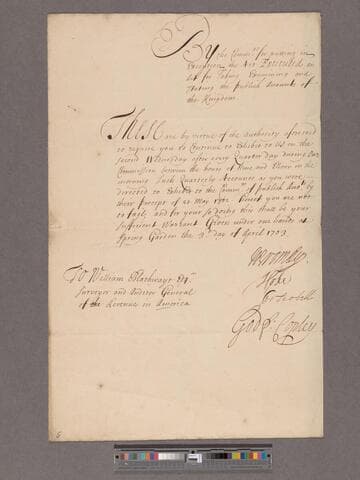 By the Comm.rs for putting in
Execution the Act Entituled an
Act for Taking Examining and
Stating the Publick Accounts of
the Kingdom
These are by virtue of the Authority aforesaid
to require you to Continue to Exhibit to Us in the
second Wednesday after every Quarter day during Our
Commission between the hours of Nine and Eleven in the
morning Such Quarterly Accounts as you were
directed to Exhibit to the Comm.rs of Publick Acc.ts by
their Precept of 20 May 1702 hereof you are not
to fail, and for your so doing this shall be your
sufficient Warrant Given under our hands at
Spring Garden the 3.d day of April 1703
To William Blathwayt Esq.r
Surveyor and Auditor General
of the Revenue in America
W Bromley
God: Copley